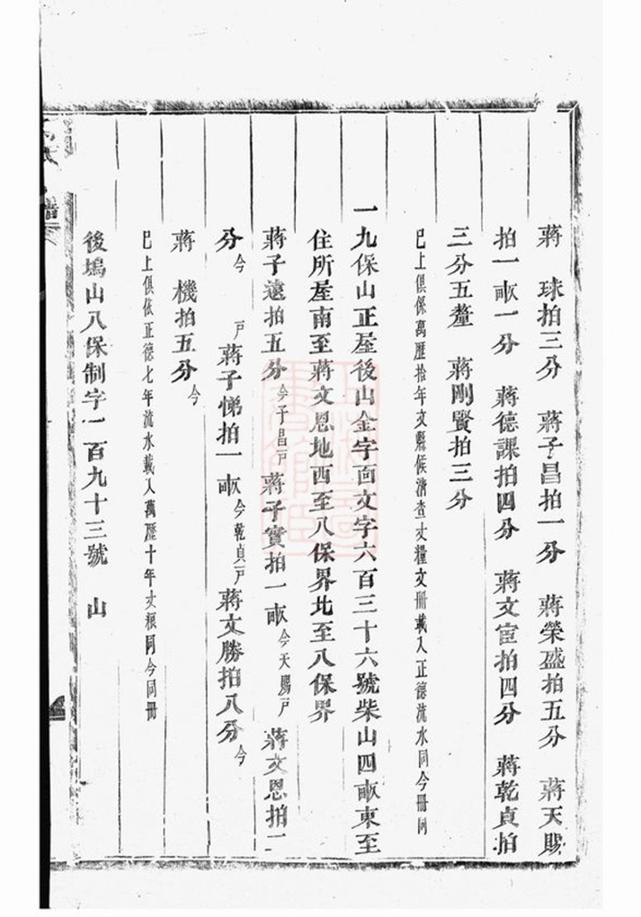 蔣　球拍三分　蔣子昌拍一分　蔣榮盛拍五分　蔣天賜
拍一畝一分　蔣德課拍四分　蔣文宦拍四分　蔣乾貞拍
三分五釐　蔣剛賢拍三分
已上俱係萬歷拾年丈縣候清查丈糧文冊載入正德流水同今冊同
一九保山正屋後山金字面文字六百三十六號柴山四畝東至
住所屋南至蔣文恩地西至八保界北至八保界
蔣子遠拍五分今子昌戸蔣子實拍一畝今天賜戸蔣文恩拍二
分今　戸蔣子悌拍一畝今乾貞戸蔣文勝拍八分今
蔣　機拍五分今
已上俱依正德七年流水載入萬歷十年丈根同今同冊
後塢山八保制字一百九十三號　山